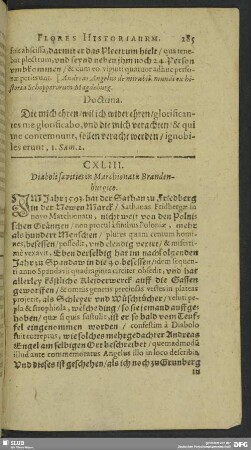 FLORES HISTORIARUM. 285
fice abscissa, darmit er das Plectrum hielt / qua tene-
bat plectrum, und seynd neben jhm noch 24. Person
personæ perierunt. (Andreas Angelus de mirabili mundi ex hi-
storia Schopporarum Magdeburg.
Doctrina.
Die mich ehren / wil ich wider ehren / glorifican-
tes me glorificabo, vnd die mich verachten / & qui
me contemnunt, sollen veracht werden / ignobi-
les erunt, 1. Sam. 2.
CXLIII.
Diaboli sævities in Marchionatu Branden-
burgico.
IM Jahr 1593. hat der Sathan zu Friedberg
in der Newen Marck / Sathanas Fridbergæ in
novo Marchionatu, nicht weit von den Polni-
schen Gräntzen / non procul à finibus Poloniæ, mehr
als hundert Menschen / plures quàm centum homi-
nes, besessen / possedit, vnd elendig verirt / & miserri-
mè vexavit, Eben derselbig hat im nachfolgenden
Jahr zu Spandaw in die 4 / besessen / idem sequen-
ti anno Spandavii quadraginta circiter obsedit, vnd hat
allerley Köstliche Kleiderwerck auff die Gassen
geworffen / & omnis generis preciosas vestes in plateas
projecit, als Schleyer vnd Wüschtücher / veluti pe-
pla & strophiola, welche ding / so sie jemand auffge-
hoben / quæ si quis sustulit ist er so bald vom Teuf-
fel eingenommen worden / confestim à Diabolo
fuit correptus, wie solches mehrgedachter Andreas
Engel am selbigen Ort beschreibet / quemadmodū
illud ante commemoratus Angelus illo in loco describit.
Vnd dieses ist geschehen / als ich noch zu Grünberg
in
SLUB
DFG